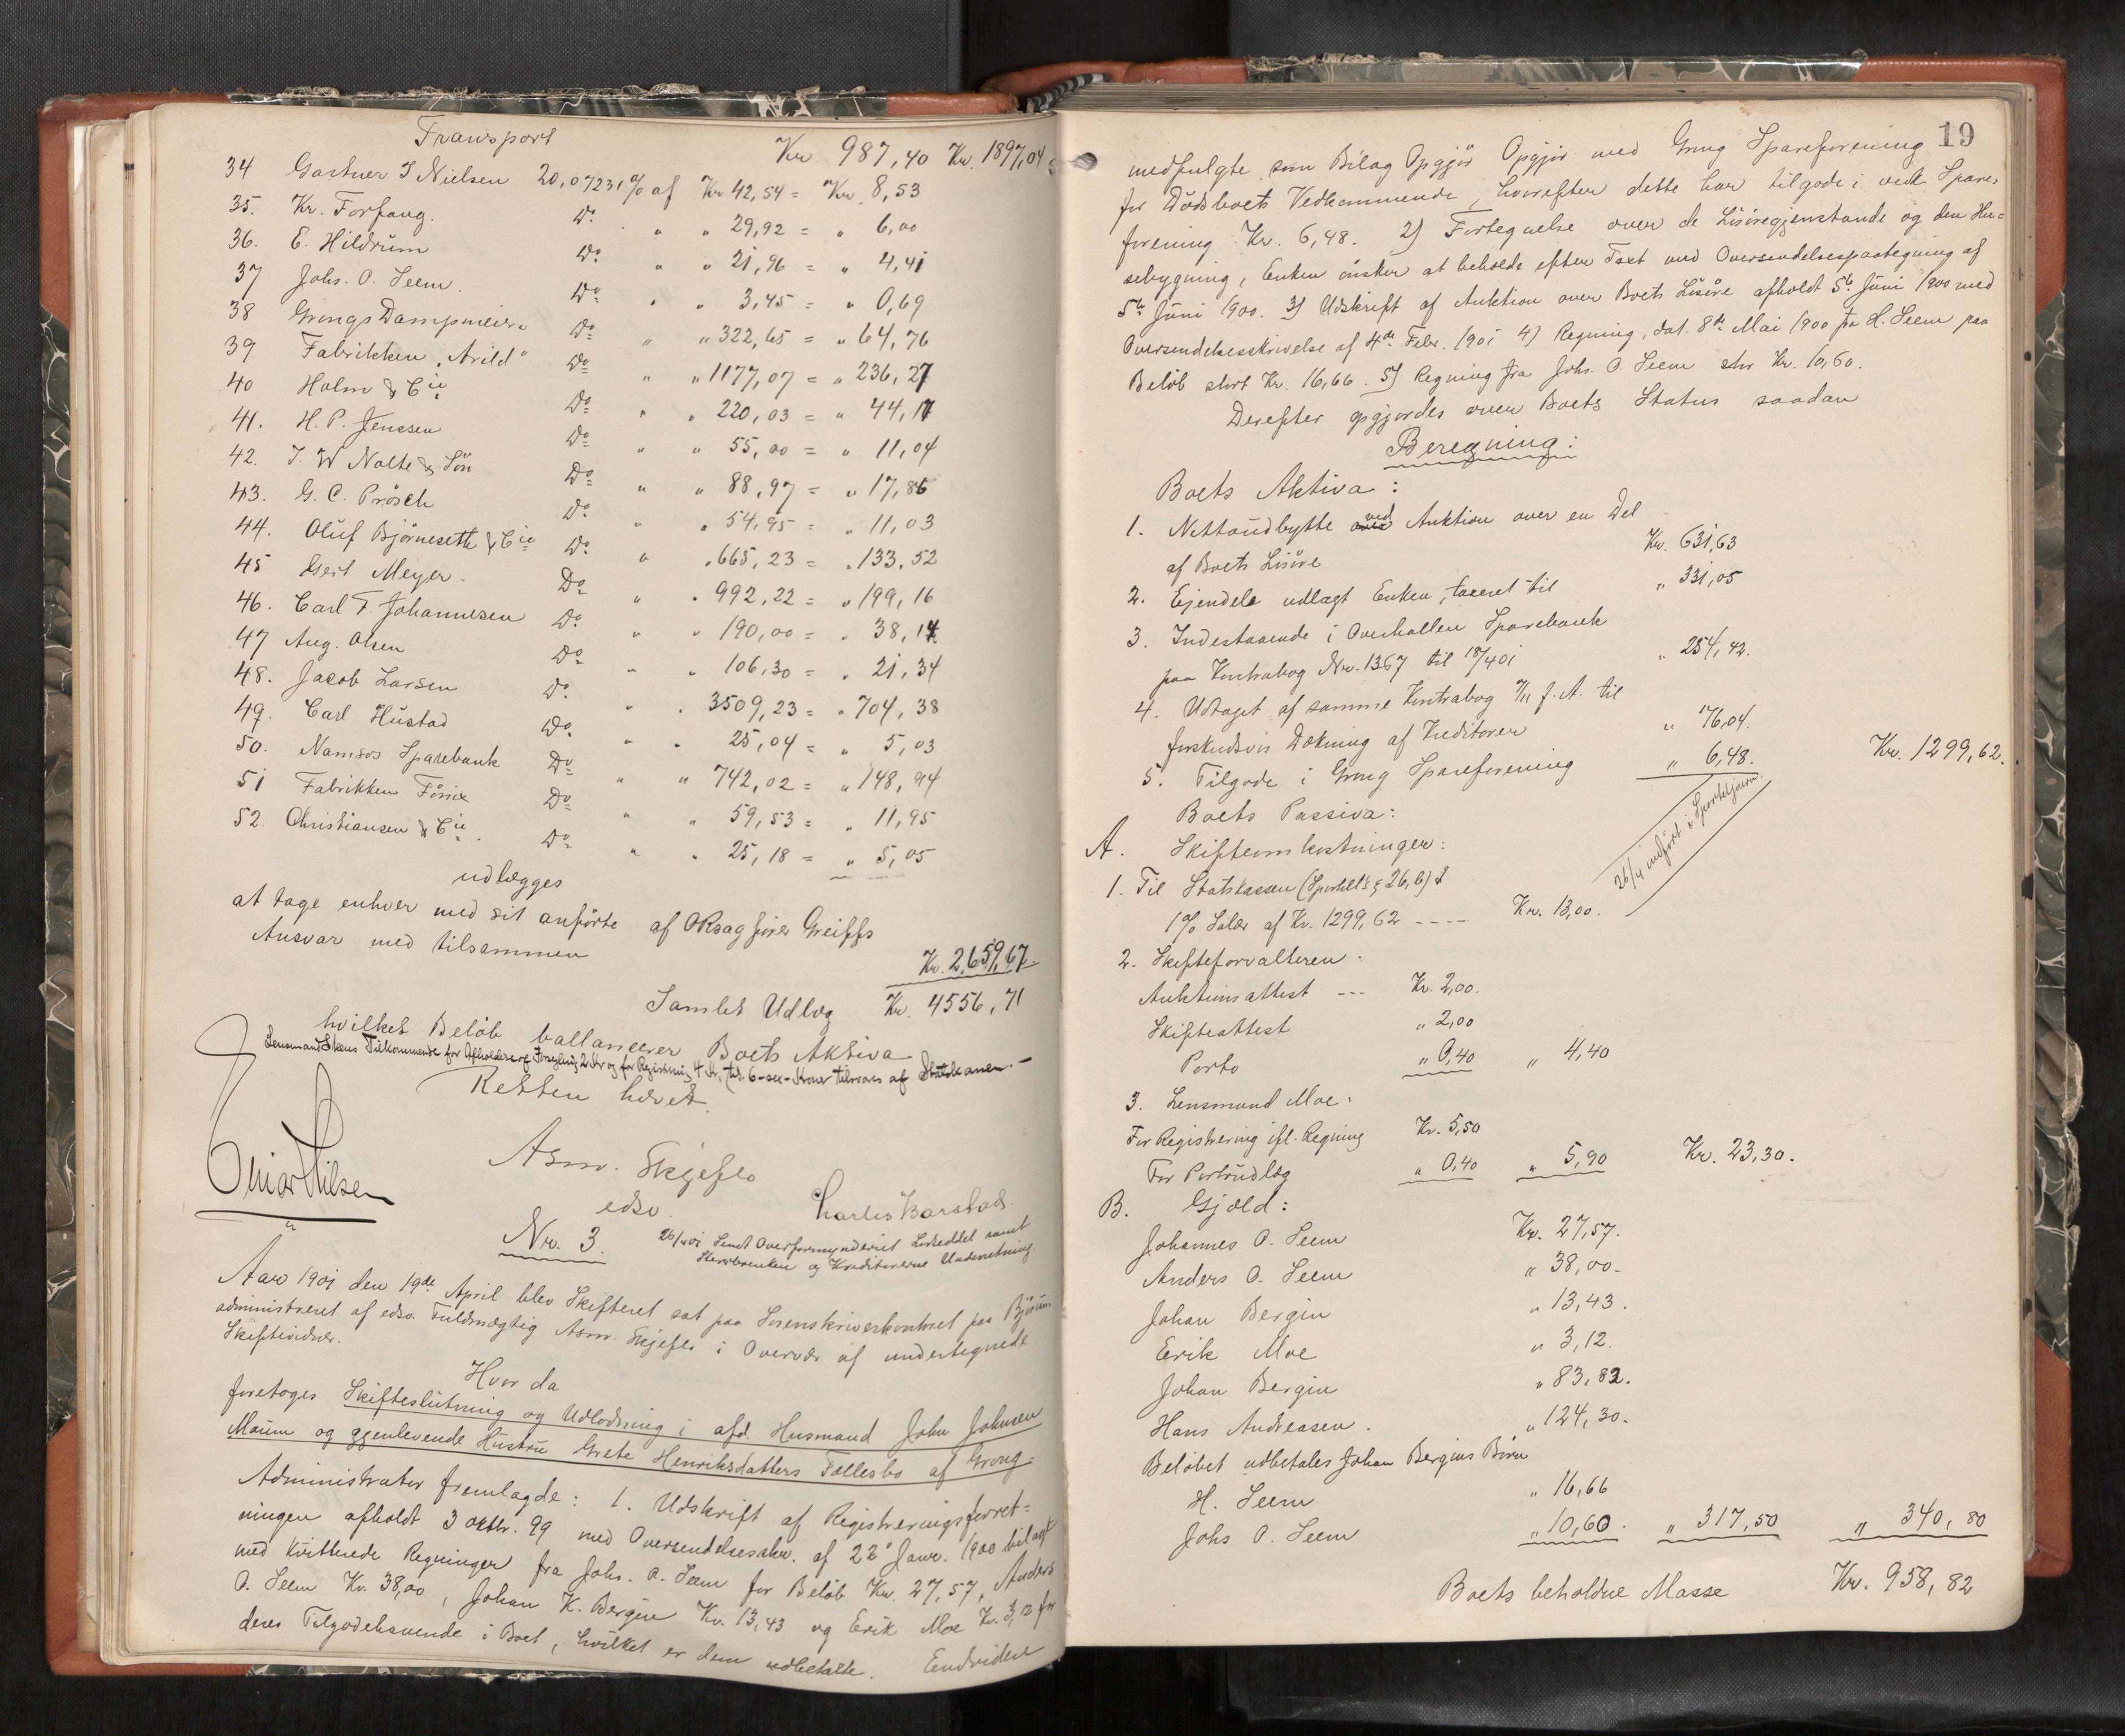 Transport Kr 987,40 Kr. 1897,04
34 Gartner I Nielsen 20,07231% af Kr 42,54 = Kr. 8,53
35. Kr. Forfang. Do " " 29,92 = " 6,00
36. E. Hildrum Do " " 21,96 = " 4,41
37 Johs. O. Seem. Do " " 3,45 = " 0,69
38 Grongs Dampmeieri Do " " 322,65 = " 64,76
39 Fabrikken "Arild" Do " " 1177,07 = " 236,27
40 Holm & Cie Do " " 220,03 = " 44,17
41. H. P. Jenssen Do " " 55,00 = " 11,04
42. I. W Nolte & Sön Do " " 88,97 = " 17,86
43. G. C. Prösch Do " " 54,95 = " 11,03
44. Oluf Björneseth & Cie Do " " 665,23 = " 133,52
45 Gert Meyer. Do " " 992,22 = " 199,16
46. Carl F. Johannesen Do " " 190,00 = " 38,14
47 Aug. Olsen Do " " 106,30 = " 21,34
48. Jacob Larsen Do " " 3509,23 = " 704,38
49. Carl Hustad Do " " 25,04 = " 5,03
50. Namsos Sparebank Do " " 742,02 = " 148,94
51 Fabrikken Fönix Do " " 59,53 = " 11,95
52. Christiansen & Cie. Do " " 25,18 = " 5,05
udlægges
at tage enhver med sit anförte af ORsagförer Greiffs
Ansvar med tilsammen Kr. 2,659,67
Samlet Udlæg Kr. 4556,71
hvilket Belöb ballancerer Boets Aktiva
Lensmand Skens Tilkommende for Afholdelse af Forsegling 2 Kr og for Registrering 4 Kr, tils. 6 -sex- Kroner tilsvares af Statskassen.-
Retten hævet.
Asmr. Skjeflo
edsv.
Charles Barstad.
Nr. 3. 26/4 01 Sendt Overformynderiet Lodseddel samt
Skersbrenken og Kreditorerne Underretning.
Aar 1901 den 19de April blev Skifteret sat paa Sorenskriverkontoret paa Bjørum
administreret af edsv. Fuldmægtig Asmr. Skjeflo i Overvær af undertegnede
Skiftevidner.
Hvor da
foretoges Skifteslutning og Udlodning i afd. Husmand John Johnsen
Moum og gjenlevende Hustru Grete Henriksdatters Fællesbo af Grong.
Administrator fremlagde: 1. Udskrift af Registreringsforret=
ningen afholdt 3 oktbr. 99 med Oversendelsesskr. af 22de Janr. 1900 bilagt
med kvitterede Regninger fra Johs. O. Seem for Belöb Kr. 27,57, Anders
O. Seem Kr. 38,00, Johan K. Bergin Kr. 13,43 og Erik Moe Kr. 3,12 for
deres Tilgodehavende i Boet, hvilket er dem udbetalte. Endvidere
19
medfulgte som Bilag Opgjör Opgjør med Grong Spareforening
for Dödsboets Vedkommende, hvorefter dette har tilgode i ved. Spare=
forening Kr. 6,48. 2) Fortegnelse over de Lösöregjenstande og den Hu=
sebygning, Enken önsker at beholde efter Taxt med Oversendelsespaategning af
5te Juni 1900. 3) Udskrift af Auktion over Boets Lösöre afholdt 5te Juni 1900 med
Oversendelsesskrivelse af 4de Febr. 1901 4) Regning, dat. 8de Mai 1900 fra H. Seem paa
Belöb stort Kr. 16,66. 5) Regning fra Johs. O. Seem stor Kr. 10,60.
Derefter opgjordes over Boets Status saadan
Beregning:
Boets Aktiva:
1. Nettoudbytte over ved Auktion over en Del
af Boets Lösöre Kr. 631,63
2. Ejendele udlagt Enken, taxeret til " 331,05
3. Indestaaende i Overhallen Sparebank
paa Kontrabog Nr. 1367 til 18/4 01 " 254,42.
4. Udtaget af samme Kontrabog 7/11 f. A. til
forskudsvis Dækning af Kreditorer " 76,04.
5. Tilgode i Grong Spareforening " 6,48. Kr. 1299,62.
Boets Passiva:
26/4 indfört i Sporteljourn.
A. Skifteomkostninger:
1. Til Statskassen (Sportell's § 26, b)
1% Salær af Kr. 1299,62 ---- Kr. 13,00.
2. Skifteforvalteren:
Auktionsattest --- Kr. 2,00.
Skifteattest " 2,00
Porto " 0,40 " 4,40
3. Lensmand Moe:
For Registrering ifl. Regning Kr. 5,50
For Portoudlæg " 0,40 " 5,90 Kr. 23,30.
B. Gjæld:
Johannes O. Seem Kr. 27,57.
Anders O. Seem " 38,00.
Johan Bergin " 13,43.
Erik Moe " 3,12.
Johan Bergin " 83,82.
Hans Andreasen. " 124,30.
Belöbet udbetales Johan Bergins Börn
H. Seem " 16,66
Johs O. Seem " 10,60. " 317,50 " 340,80
Boets beholdne Masse Kr. 958,82